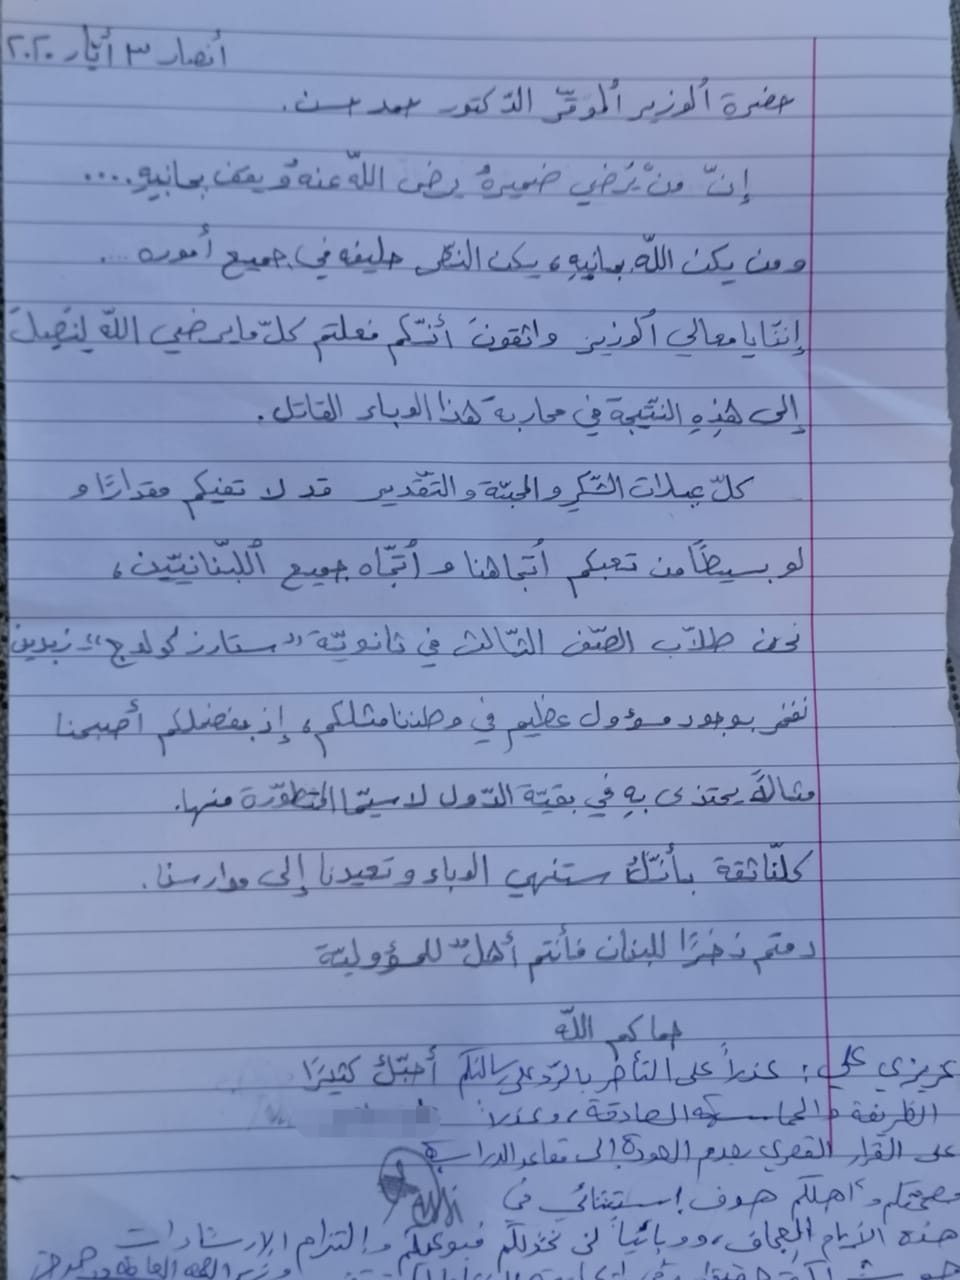 أنصار ٣ أيّار ٢٠٢٠
حضرة ألوزير ألموقّر الدّكتور حمد حسن.
إنّ منْ يُرْضي ضميرهُ يرضى اللّه عنهُ ويقف بجانبِهِ....
ومن يكن اللّه بجانبِهِ، يكن النّصر حليفه في جميع أموره...
إنّنا يا معالي ألوزير واثقونَ أنّكم فعلتم كلّ ما يرضي اللّه لنَصِلَ
إلى هذِهِ النّتيجة في محاربة هذا الوباء القاتل.
كلّ عبارات الشّكر والمحبّة والتّقدير قد لا تفيكم مقدارًا و
لو بسيطًا من تعبكم أتجاهنا وأتّجاه جميع أللّبنانيّين،
نحن طلّاب الصّف الثّالث في ثانويّة "ستارز كولدج" زبدين
نفخر بوجود مسؤول عظيم في وطننا مثلكم، إذ بفضلكم أصبحنا
مثالًا يحتذى بهِ في بقيّة الدّول لا سيّما المتطوّرة منها.
كلّنا ثقة بأنّك ستنهي الوباء وتعيدنا إلى مدارسنا.
دمتم ذخرًا للبنان فأنتم أهلٌ للمسؤوليّة
حماكم اللّه
عزيزي علي: عذراً على التأخر بالرّد على رسالتكم أحبّك كثيرًا
الظريفة والحماسية الصادقة، وعذراً
على القرار القسري بعدم العودة إلى مقاعد الدراسة
صحتكم وأهلكم هدف إستثنائي في
هذه الأيام العجاف، ووبائياً لن نخذلكم فبوعيكم والتزام الإرشادات